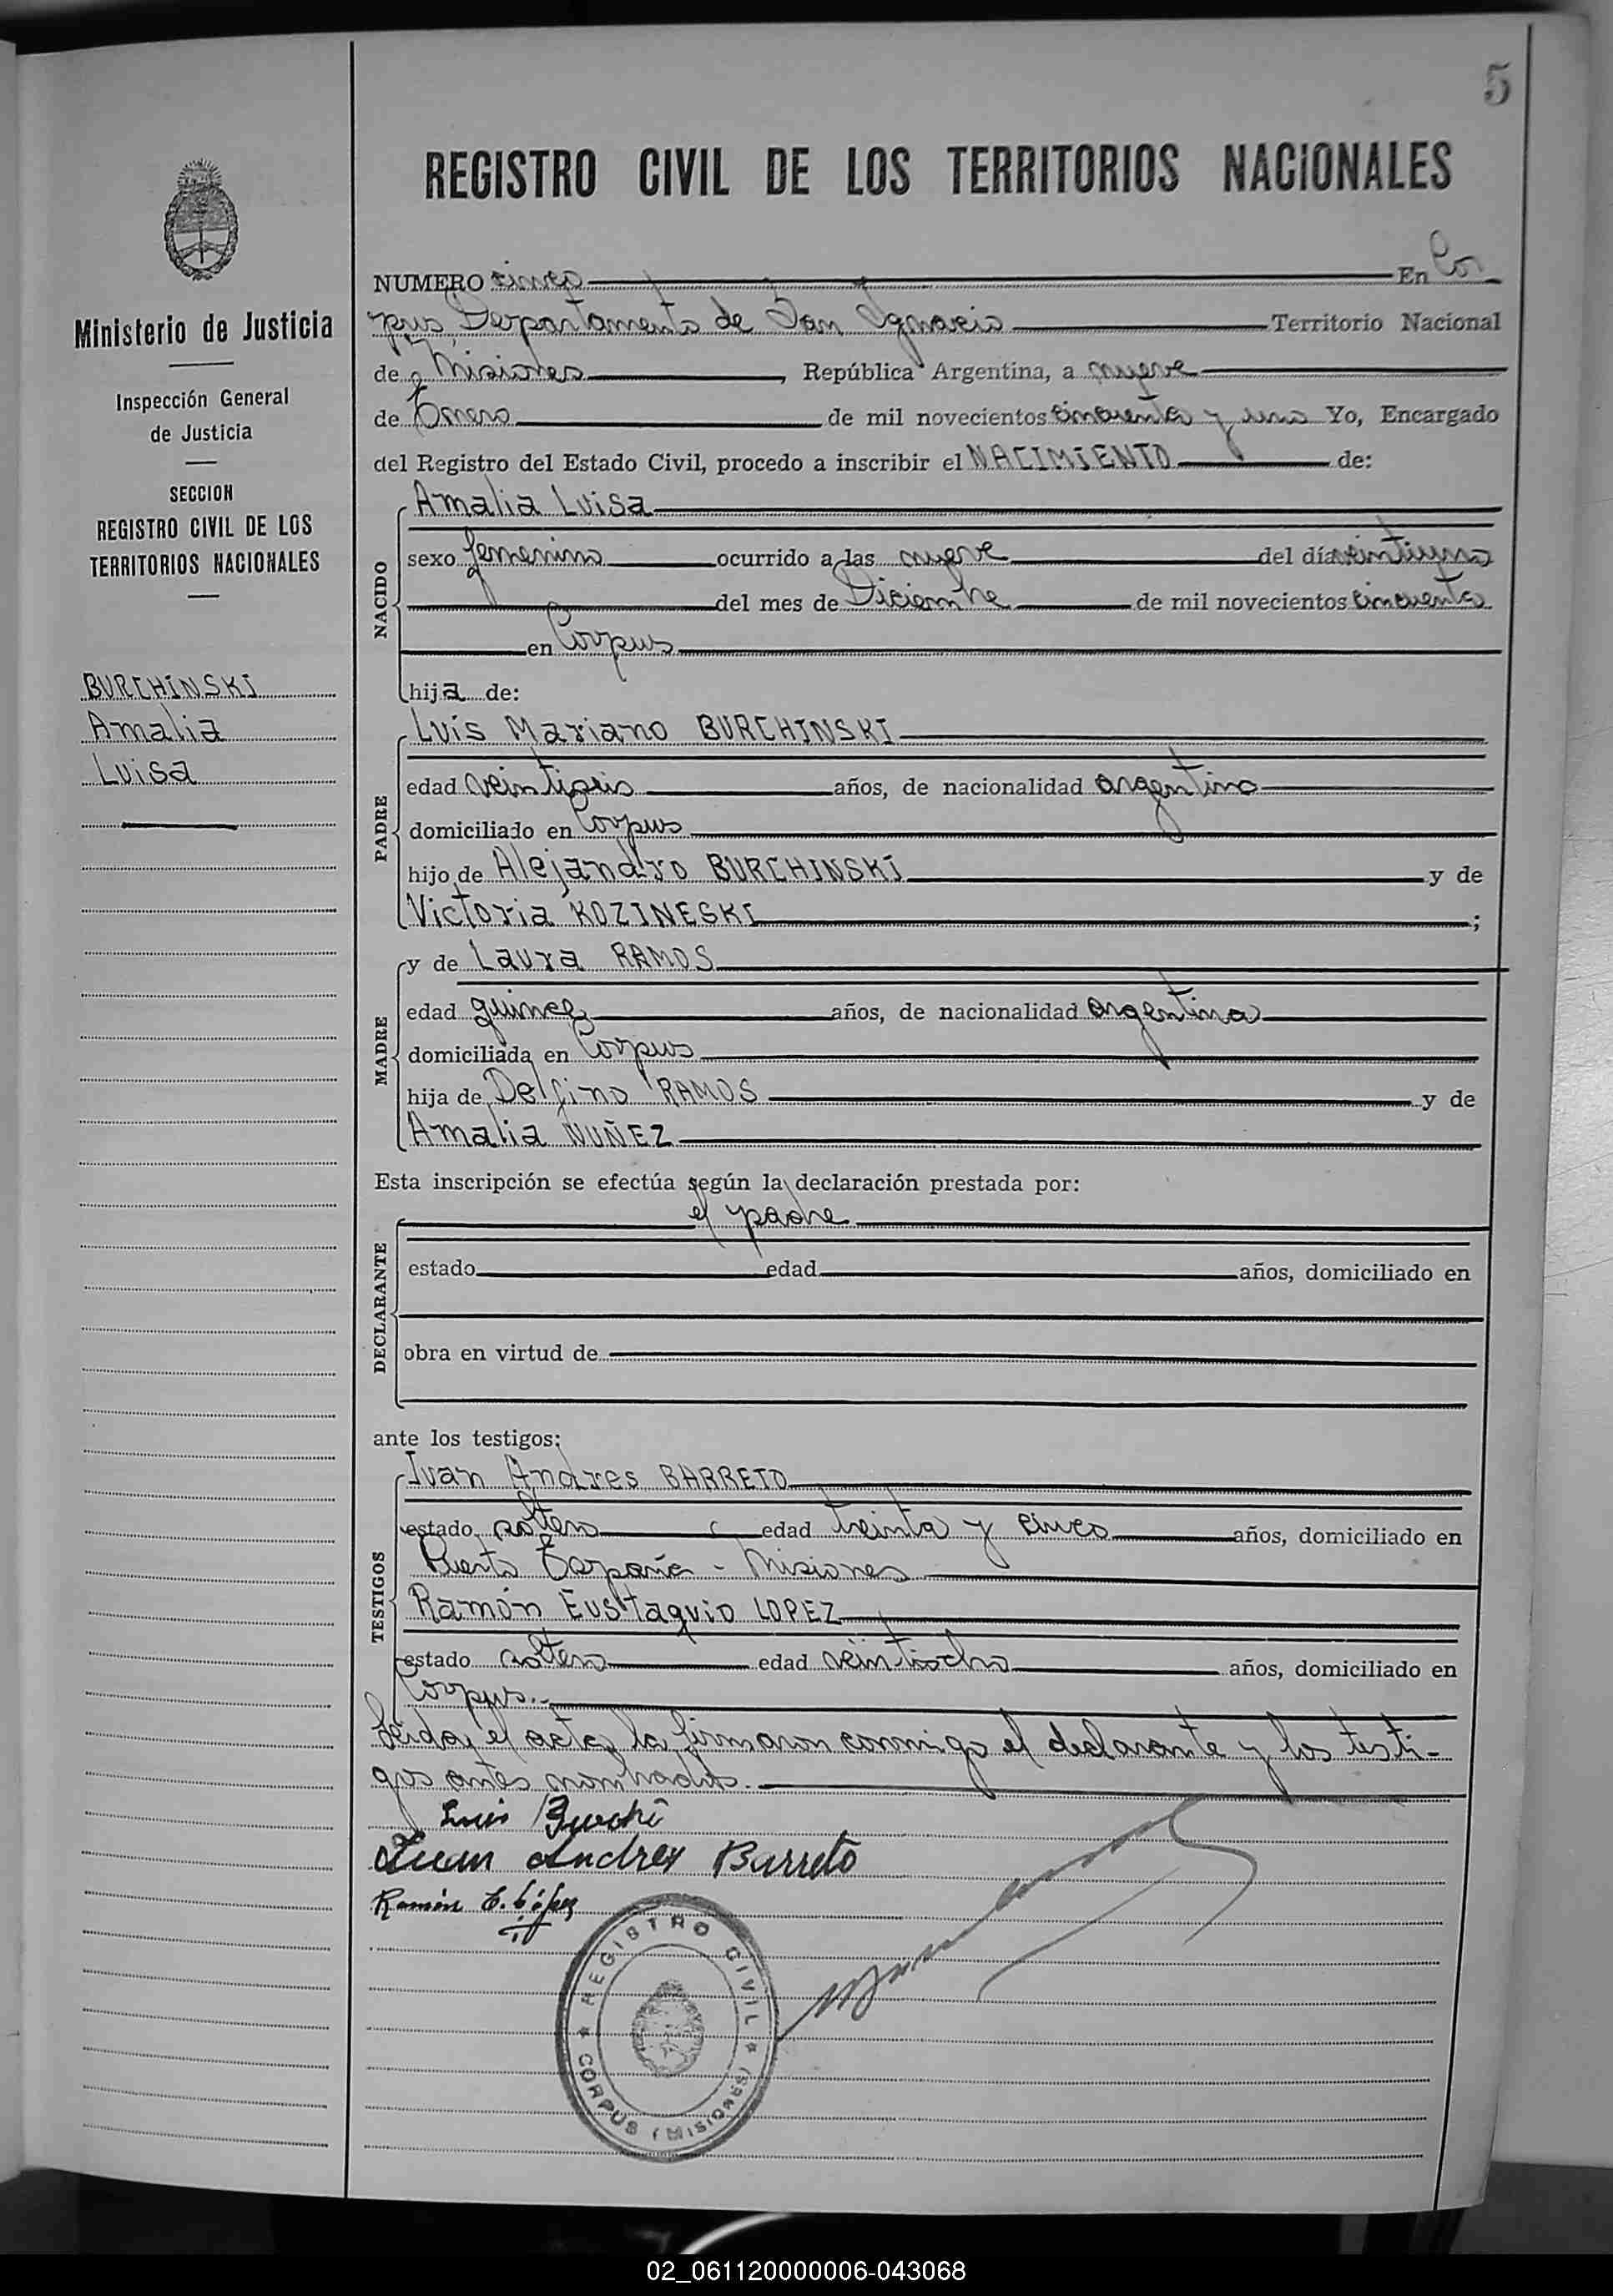 5
REGISTRO CIVIL DE LOS TERRITORIOS NACIONALES
Ministerio de Justicia
Inspección General
de Justicia
SECCION
REGISTRO CIVIL DE LOS
TERRITORIOS NACIONALES
BURCHINSKI
Amalia
Luisa
NUMERO cinco En Cor
pus Departamento de San Ignacio Territorio Nacional
de Misiones, República Argentina, a nueve
de Enero de mil novecientos cincuenta y uno Yo, Encargado
del Registro del Estado Civil, procedo a inscribir el NACIMIENTO de:
NACIDO
Amalia Luisa
sexo femenino ocurrido a las nueve del día veintiuno
del mes de Diciembre de mil novecientos cincuenta
en Corpus
hija de:
PADRE
Luís Mariano BURCHINSKI
edad veintiseis años, de nacionalidad argentino
domiciliado en Corpus
hijo de Alejandro BURCHINSKI y de
Victoria KOZINESKI;
MADRE
y de Laura RAMOS
edad quince años, de nacionalidad argentina
domiciliada en Corpus
hija de Delfino RAMOS y de
Amalia NUÑEZ
Esta inscripción se efectúa según la declaración prestada por:
DECLARANTE
el padre
estado edad años, domiciliado en
obra en virtud de
ante los testigos:
TESTIGOS
Juan Andres BARRETO
estado soltero edad treinta y cinco años, domiciliado en
Puerto España - Misiones
Ramón Eustaquio LOPEZ
estado soltero edad veintiocho años, domiciliado en
Corpus.-
Leida el acta, la firmaron conmigo el declarante y los testi-
gos antes nombrados.
Luis Burchi
Juan Andres Barreto
Ramón E. López
REGISTRO CIVIL
CORPUS (MISIONES)
02_061120000006-043068